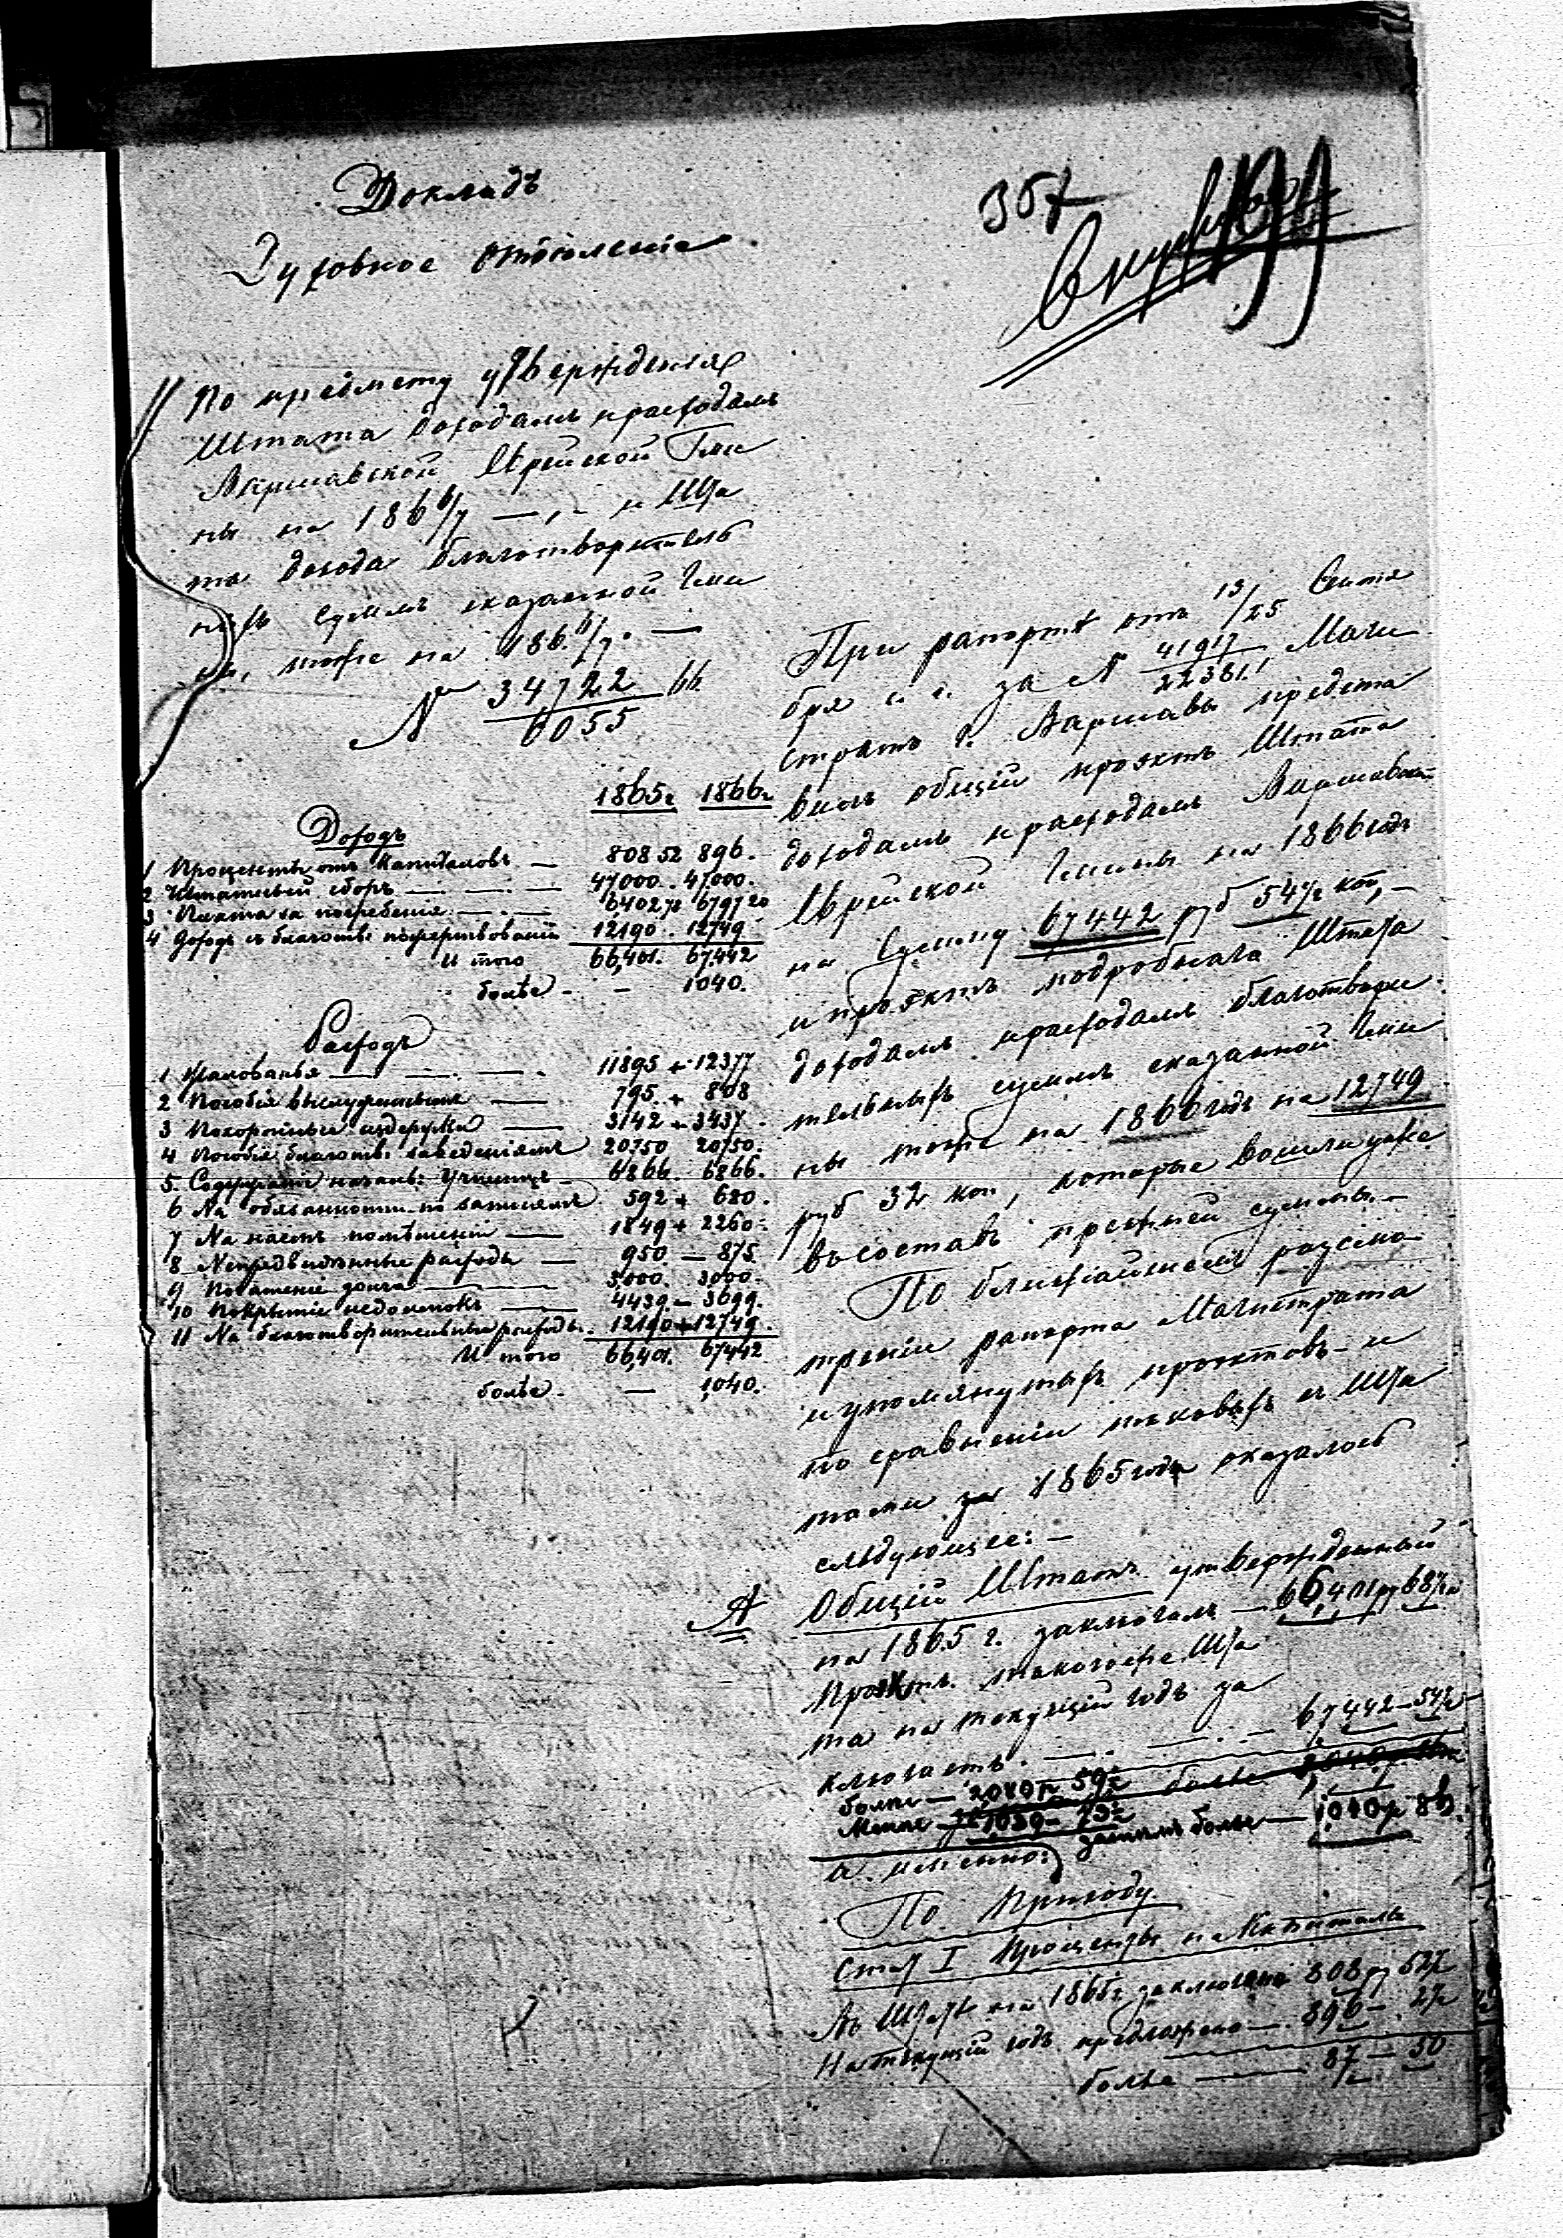 Докладъ
Духовное отдѣленіе
357
199
По предмету утвержденія
Штата доходамъ и расходамъ
Варшавской Еврейской Гми
ны на 1866/7 —,— и Шта
та дохода благотворитель
ныхъ суммъ сказанной Гми
ны, тоже на 1866/7. —
№ 34722/6055 66
1865г. 1866г.
Доходъ
1 Проценты отъ Капиталовъ — 808 52 896.
2 Штатный сборъ — 47000. 47000.
3 Плата за погребенія — 6402 72 6797 20
4 Доходъ съ благотв: пожертвованій 12190. 12749
Итого 66,401. 67442
болѣе — — 1040.
Расходъ
1 Жалованья — 11895 + 12377
2 Пособія выслужившимъ — 795 + 808
3 Похоронныя издержки — 3142 + 3437
4 Пособія благотв: заведеніямъ 20750 20750.
5. Содержаніе началь: Училищъ — 6866. 6866.
6 На обязанности по записямъ 592 + 680.
7 На наемъ помѣщеній — 1849 + 2260.
8 Непредвидѣнные расходы — 950 — 875.
9 Погашеніе долга — 3000. 3000.
10 Покрытіе недоимокъ — 4439 — 3699.
11 На благотворительные расходы. 12190 + 12749.
Итого 66,401. 67442
болѣе — — 1,040.
При рапортѣ отъ 13/25 Сентя
бря с. г. за № 41917/22381, Маги
стратъ г. Варшавы предста
вилъ общій проэктъ Штата
доходамъ и расходамъ Варшавской
Еврейской Гмины на 1866 годъ
на Сумму 67442 руб 54½ коп, —
и проэктъ подробнаго Штата
доходамъ и расходамъ благотвори
тельныхъ суммъ сказанной Гми
ны тоже на 1866 годъ на 12749
руб 32 коп, которые вошли уже
въ составъ прежней суммы. —
По ближайшемъ разсмо
трѣніи рапорта Магистрата
и упомянутыхъ проэктовъ — и
по сравненіи таковыхъ съ Шта
тами за 1865 годъ оказалось
слѣдующее: —
А Общій Штатъ утвержденный
на 1865 г. заключалъ — 66,401 ру 68½ к
Проэктъ. такогоже Шта
та на текущій годъ за
ключаетъ. — 67,442 — 54½
болѣе — 2080 р 59½ болѣе
Менѣе — 1039 — 73½ затѣмъ болѣе — 1040 р 86.
а именно:
По Приходу
Стат I Проценты на Капиталы
Въ Штатѣ на 1865г. заключено 808 ру 52½
На текущій годъ предложено — 896 — 2½
болѣе — 87 — 50